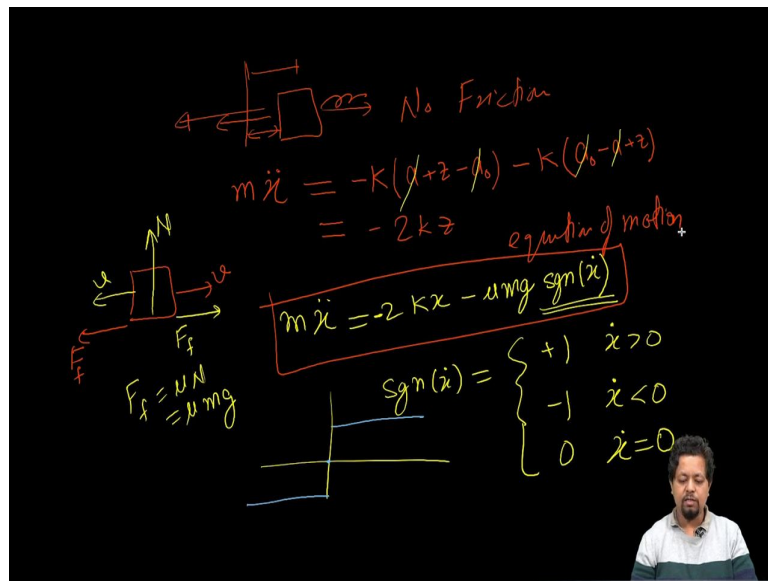 No Friction
mẍ = -K(d+z-d₀) - K(d₀-d+z)
= -2kz
equation of motion
N
v v
mẍ = -2Kx - μmg sgn(ẋ)
F_f F_f
F_f = μN
= μmg
sgn(ẋ) = { +1 ẋ>0
-1 ẋ<0
0 ẋ=0